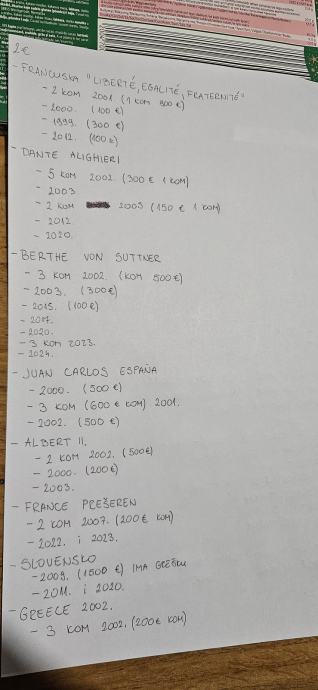 2€
- FRANCUSKA "LIBERTÉ, EGALITÉ, FRATERNITÉ"
- 2 KOM 2001. (1 KOM 800 €)
- 2000. (100 €)
- 1999. (300 €)
- 2012. (100 €)
- DANTE ALIGHIERI
- 5 KOM 2002. (300 € 1 KOM)
- 2003.
- 2 KOM 2005 (150 € 1 KOM)
- 2012.
- 2020.
- BERTHE VON SUTTNER
- 3 KOM 2002. (KOM 500€)
- 2003. (300€)
- 2015. (100€)
- 2017.
- 2020.
- 3 KOM 2023.
- 2024.
- JUAN CARLOS ESPAÑA
- 2000. (500€)
- 3 KOM (600 € KOM) 2001.
- 2002. (500 €)
- ALBERT II.
- 2 KOM 2002. (500€)
- 2000. (200€)
- 2003.
- FRANCE PREŠEREN
- 2 KOM 2007. (200€ KOM)
- 2022. i 2023.
- SLOVENSKO
- 2009. (1500 €) IMA GREŠKU
- 2011. i 2020.
- GREECE 2002.
- 3 KOM 2002. (200€ KOM)